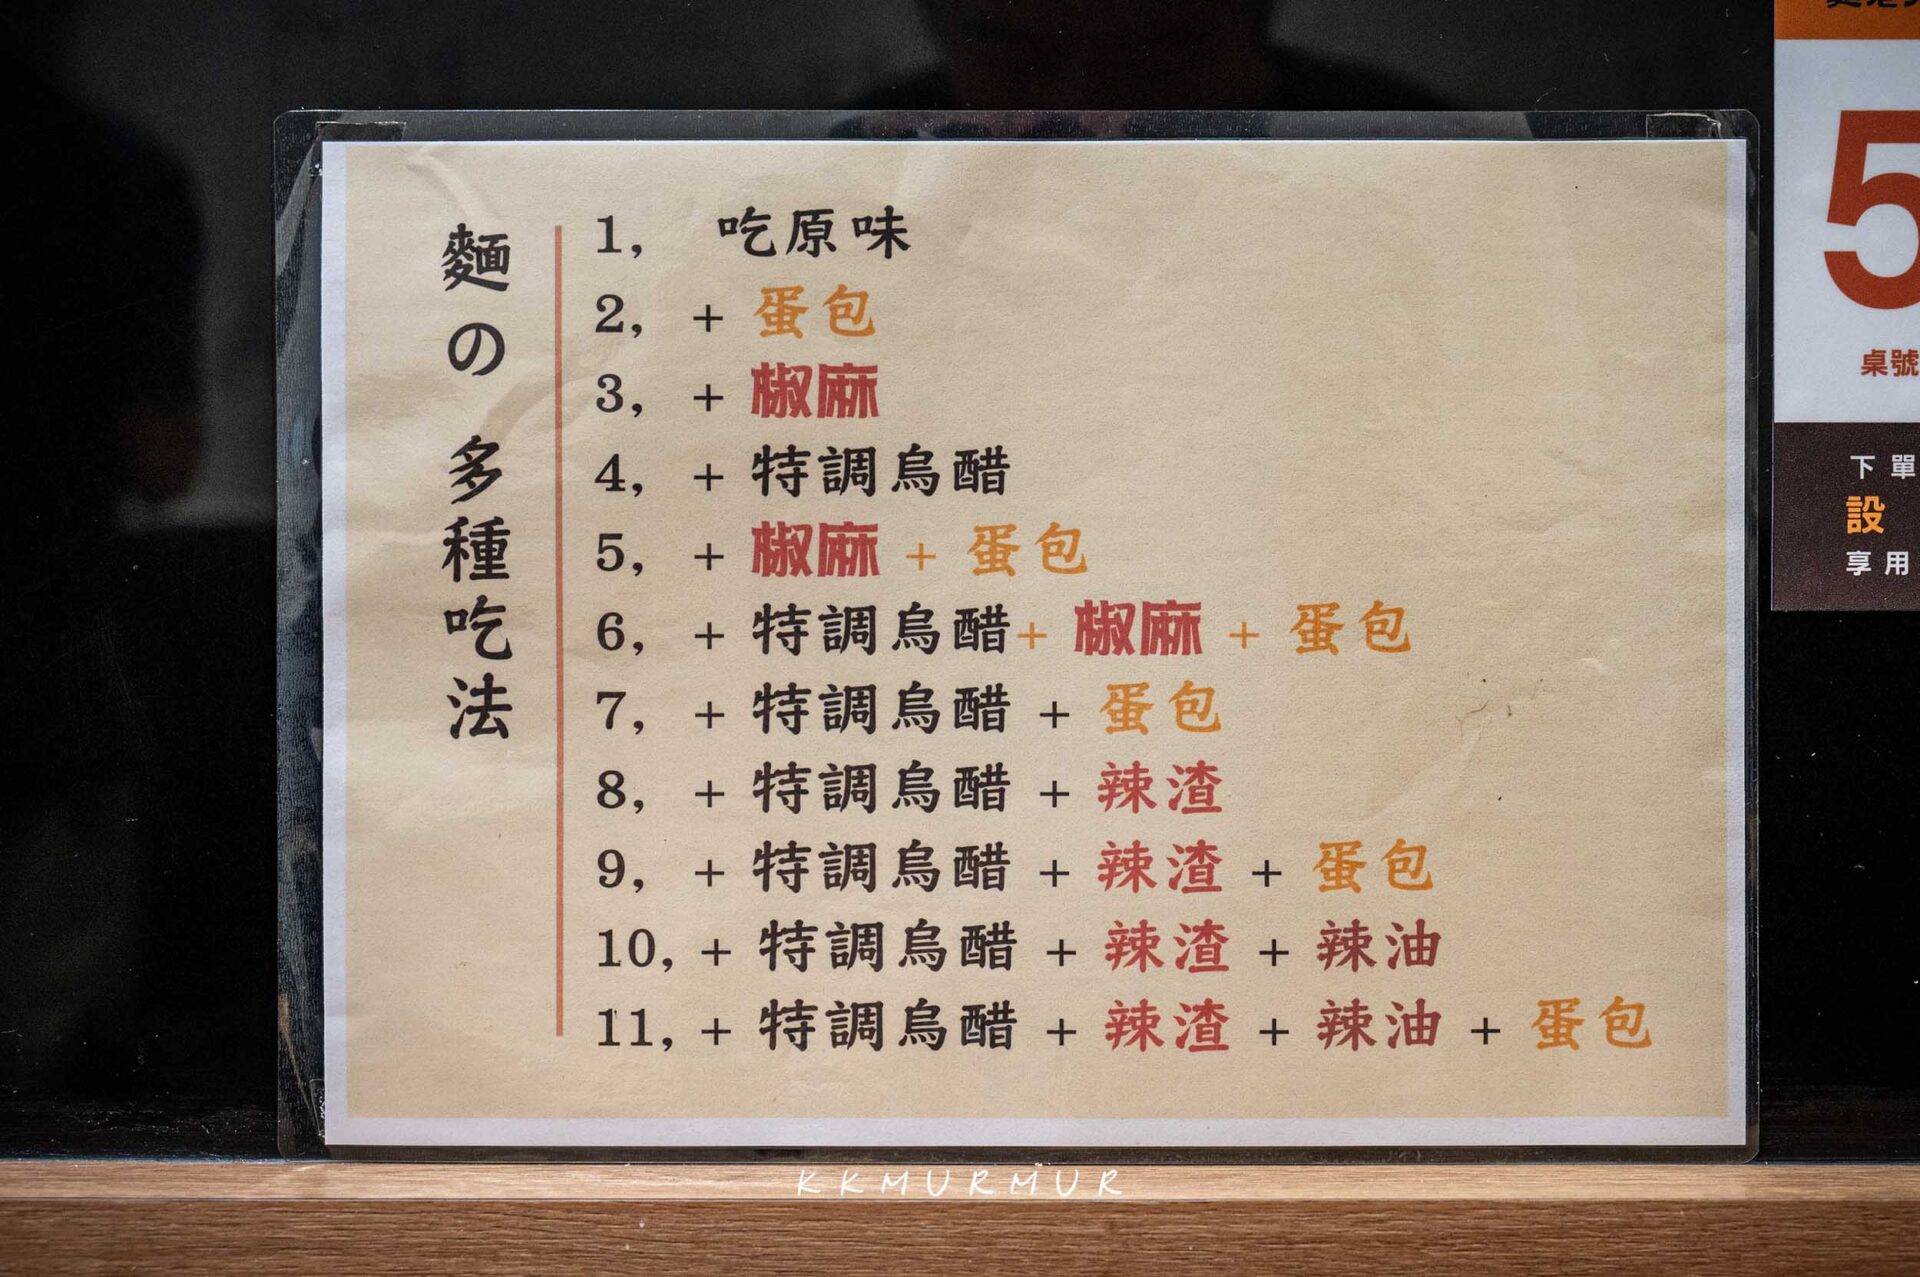 麵の 多種吃法
1, 吃原味
2, + 蛋包
3, + 椒麻
4, + 特調烏醋
5, + 椒麻 + 蛋包
6, + 特調烏醋+ 椒麻 + 蛋包
7, + 特調烏醋 + 蛋包
8, + 特調烏醋 + 辣渣
9, + 特調烏醋 + 辣渣 + 蛋包
10, + 特調烏醋 + 辣渣 + 辣油
11, + 特調烏醋 + 辣渣 + 辣油 + 蛋包
5
桌號
下單
設
享用
KKMURMUR